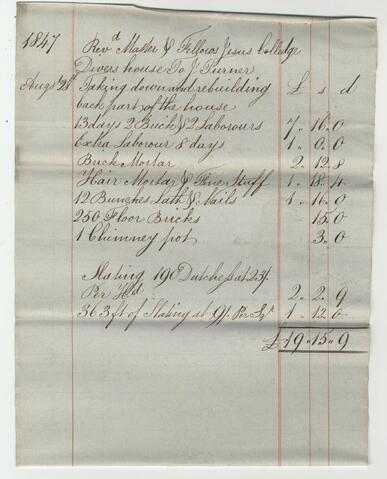 1847 Rev.d Master & Fellows Jesus Colledge
Divers house To J Turner
Augst 28th Taking down and rebuilding £ s d
back part of the house
13 days 2 Brick & 2 Laborours 7 . 16 . 0
Extra Laborour 8 days 1 . 0 . 0
Brick Mortar 2 . 12 . 8
Hair Mortar & Fine Stuff 1 . 18 . 4
12 Bunches Lath & Nails 1 . 16 . 0
250 Floor Bricks 15 . 0
1 Chimney pot 3 . 0
Slating 190 Dutches at
Per Hd 2 . 2 . 9
363 ft of Slating at 9/. Per Sqr 1 . 12 . 0
£ 19 . 15 . 9